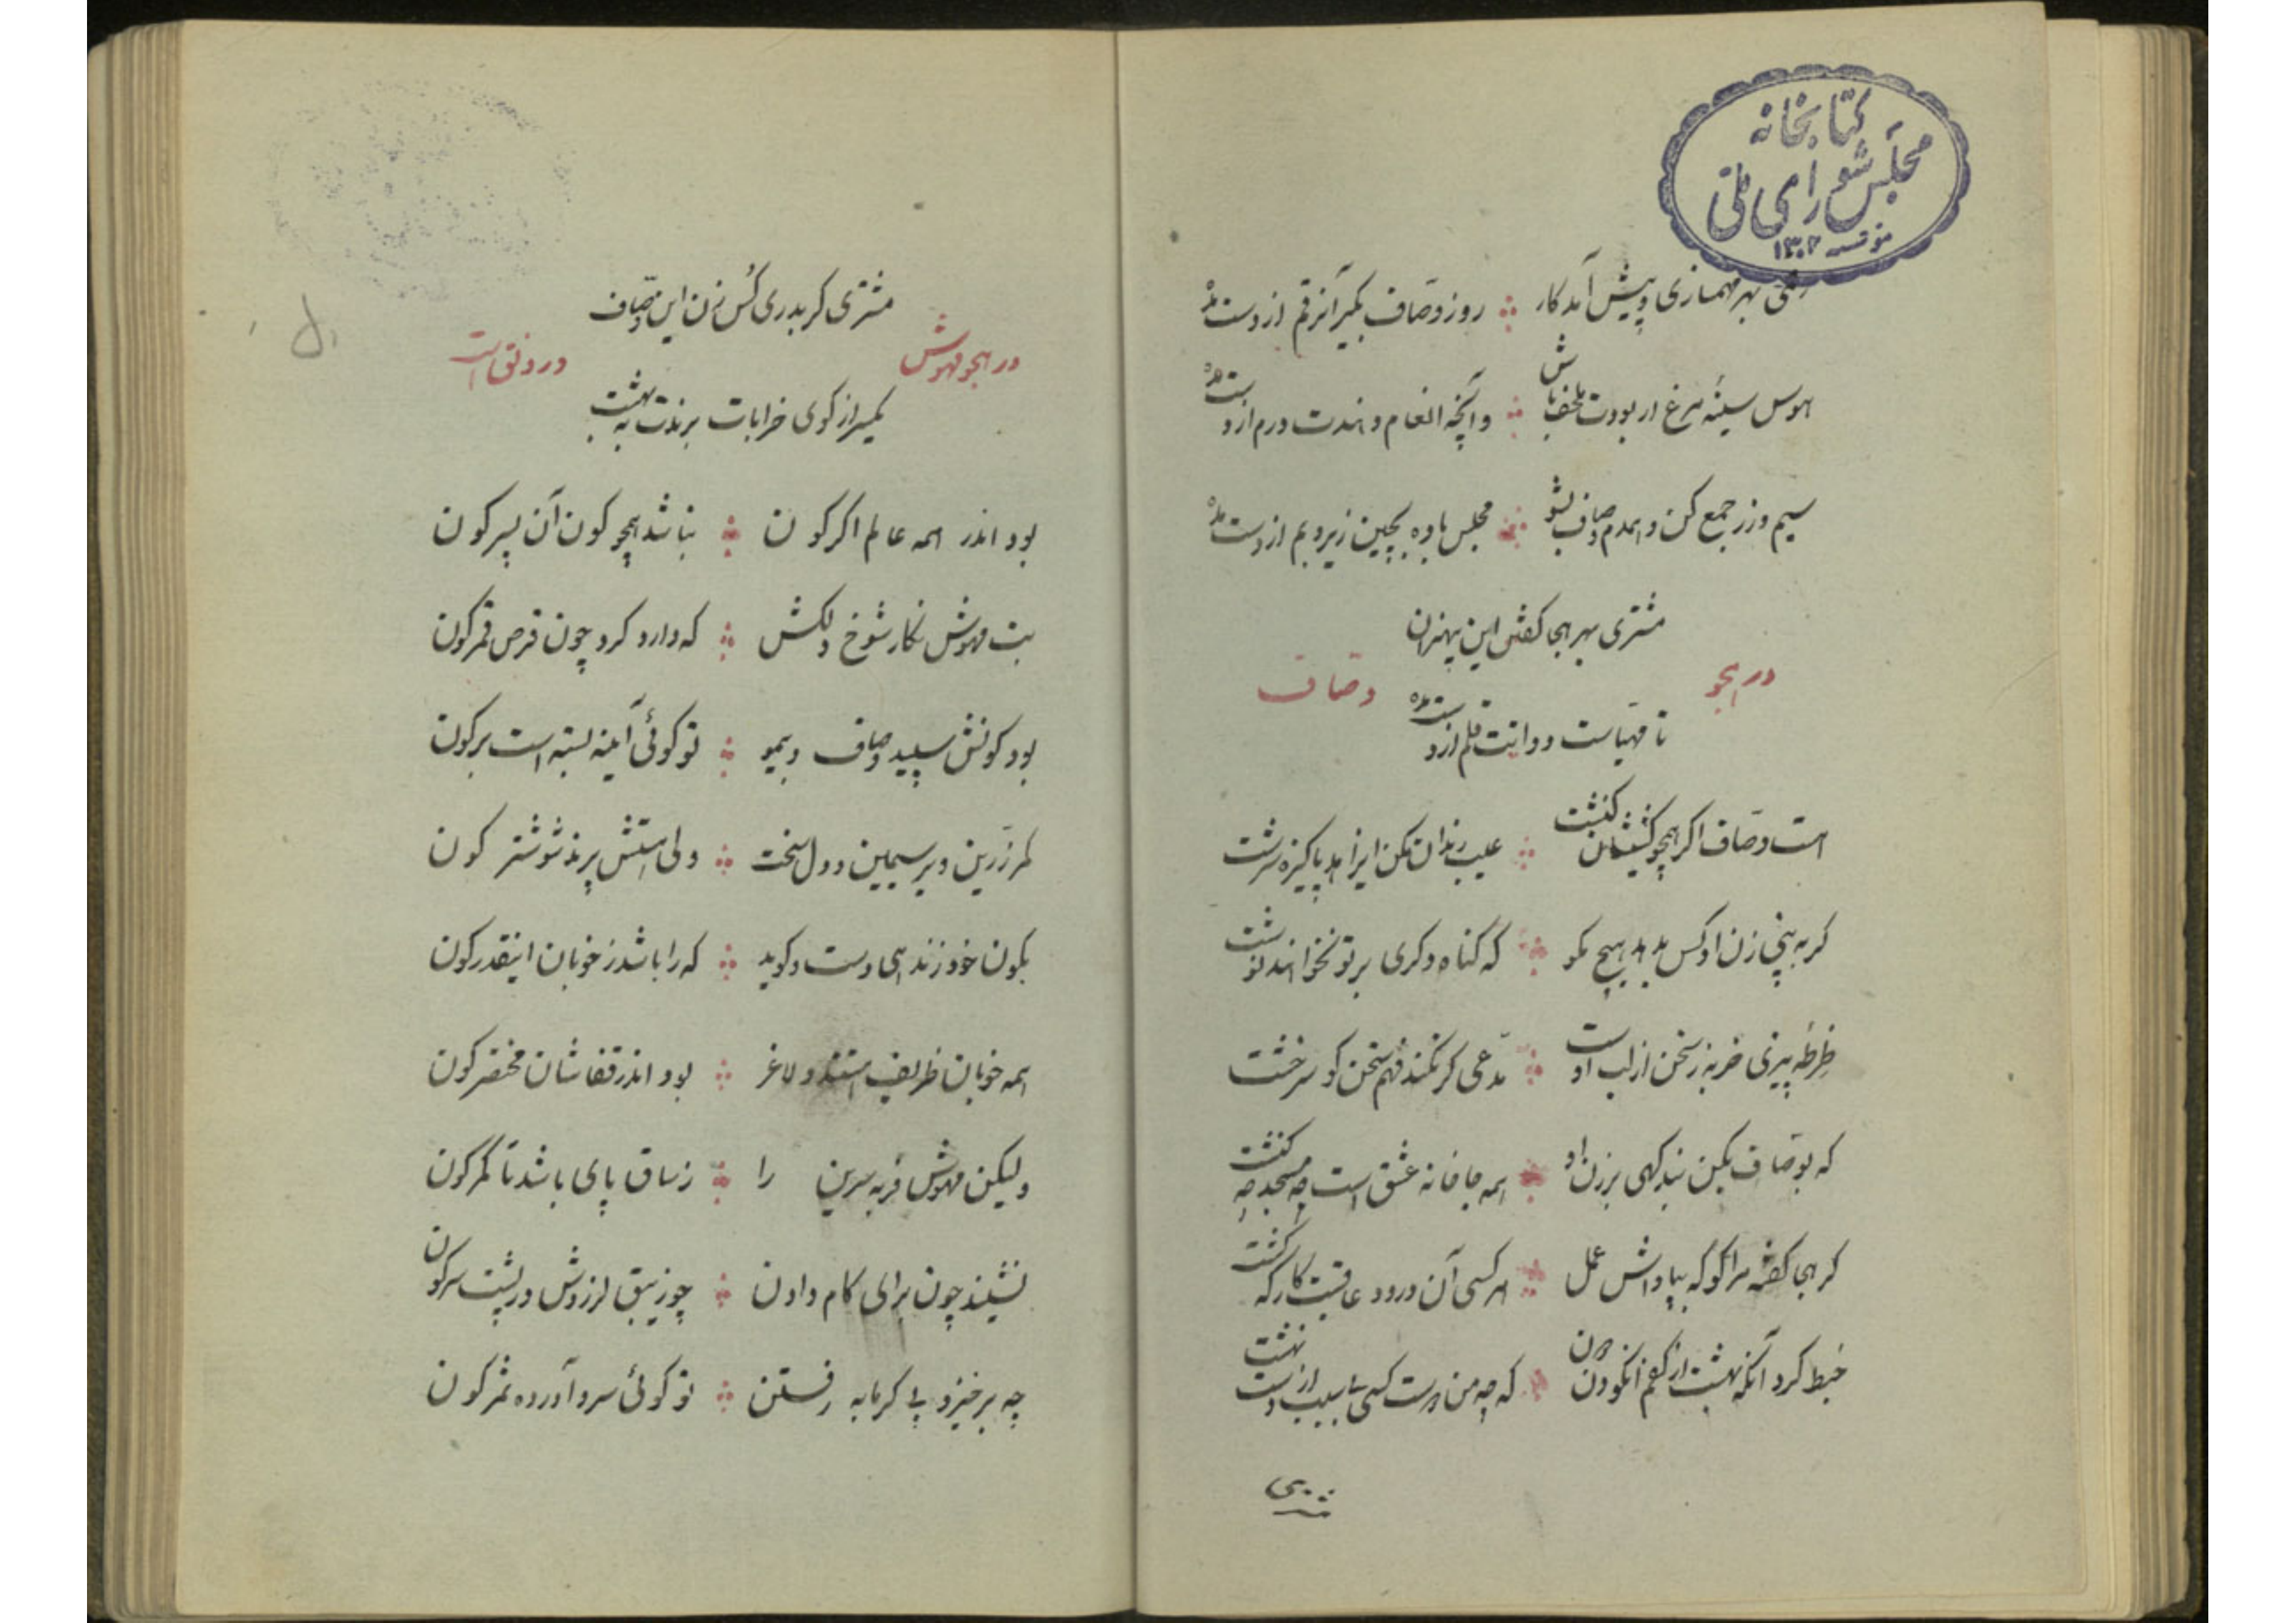 کتابخانه
مجلس شورای ملی
مؤسسه ۱۳۰۲
بهر مهمازی و پیش آمد کار روز وصاف بگیر آنرقم از دست مده
هوس سینه مرغ ار بودت ملحف باش و آنچه انعام دهندت درم از دست مده
سیم و زر جمع کن و همدم وصاف بشو مجلس باده بچین زیر و بم از دست مده
مشتری بهر هجا گفتن این بیهنران
در هجو وصاف
تا مهیاست دواتت قلم از دست مده
هست وصاف اگر همچو کشیشان کنشت عیب رندان مکن ای زاهد پاکیزه سرشت
گر به بینی زن او کس بدهد هیچ مگو که گناه دگری بر تو نخواهند نوشت
ظرطه پیرنی خربزه سخن از لب اوست مدعی گر نکند فهم سخن گو سر و خشت
که بوصاف بکن بند گهی بر زن او همه جا خانه عشق است چه مسجد چه کنشت
گر هجا گفته مرا گو که بپاداش عمل هر کسی آن درود عاقبت کار که کشت
خبط کرد آنکه بهشت از کفم انگو دون که چه من مست کسی تا سبب از دست نهشت
مشتری
مشتری گر بدری کس زن این وصاف
در هجو مهوش در دفق است
یکسر از کوی خرابات برندت به بهشت
بود اندر همه عالم اگر کون نباشد همچو کون آن پسر کون
بت مهوش نگار شوخ دلکش که دارد گرد چون قرص قمر کون
بود کونش سپید و صاف و بیمو تو گوئی آینه بسته است بر کون
کمر زرین و بر سیمین و دل سخت ولی استش پرند شوشتر کون
بکون خود زند هی دست و گوید که را باشد ز خوبان اینقدر کون
همه خوبان ظریف استند و لاغر بود اندر قفاشان مختصر کون
ولیکن مهوش فربه سرین را ز ساق پای باشد تا کمر کون
نشیند چون برای کام دادن چو زیبق لرزدش در پشت سر کون
چه برخیزد پی گرمابه رفتن تو گوئی سرو آورده ثمر کون